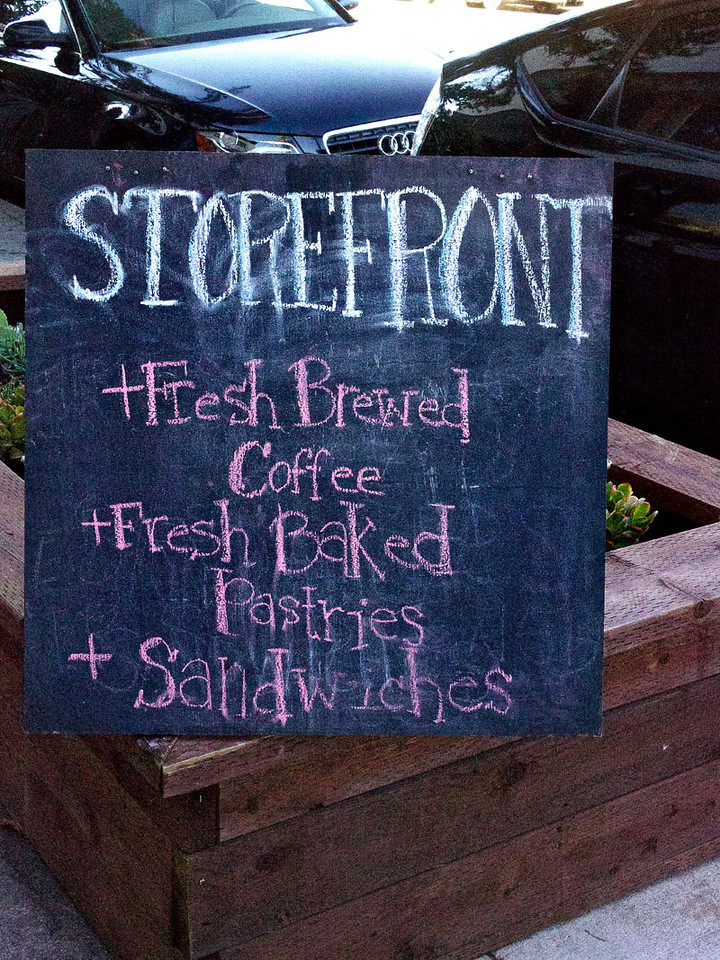 STOREFRONT
+Fresh Brewed
Coffee
+Fresh Baked
Pastries
+Sandwiches